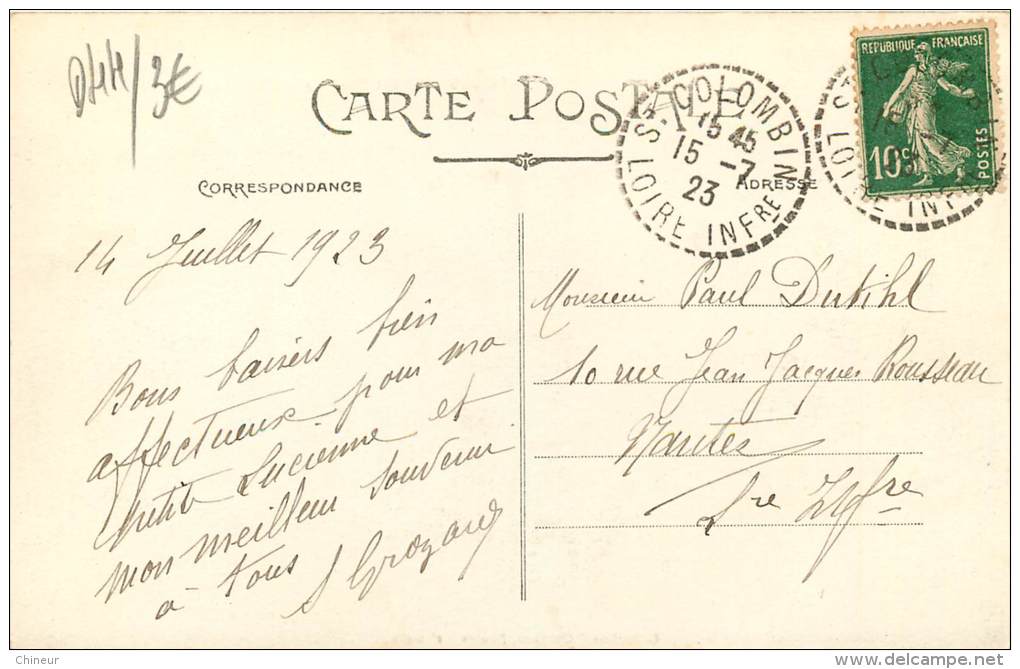 D44/3€
CARTE POSTALE
CORRESPONDANCE
ADRESSE
STE COLOMBIN
15 45
15 -7
23
LOIRE INFRE
REPUBLIQUE FRANÇAISE
10c
POSTES
LOIRE INF
14 Juillet 1923
Bons baisers bien
affectueux pour ma
petite Lucienne et
mon meilleur souvenir
à tous
Monsieur Paul Dutihl
10 rue Jean Jacques Rousseau
Nantes
Lre Infre
Chineur
delcampe.net